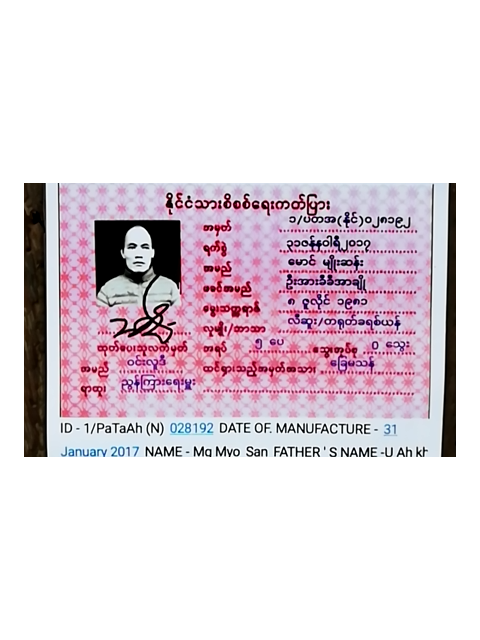 နိုင်ငံသားစိစစ်ရေးကတ်ပြား
အမှတ် ၁/ပတအ(နိုင်)၀၂၈၁၉၂
ရက်စွဲ ၃၁ဇန်နဝါရီ၂၀၁၇
အမည် မောင် မျိုးဆန်း
ဖခင်အမည် ဦးအားခီခီအာချို
မွေးသက္ကရာဇ် ၈ ဇူလိုင် ၁၉၈၁
လူမျိုး/ဘာသာ လီဆူး/တရုတ်ခရစ်ယန်
အရပ် ၅ ပေ သွေးအုပ်စု O သွေး
ထင်ရှားသည့်အမှတ်အသား ခြေမသန်
ထုတ်ပေးသူလက်မှတ်
အမည် ဝင်းလူဒီ
ရာထူး ညွှန်ကြားရေးမှူး
ID - 1/PaTaAh (N) 028192 DATE OF. MANUFACTURE - 31
January 2017 NAME - Mg Myo San FATHER ' S NAME -U Ah kh